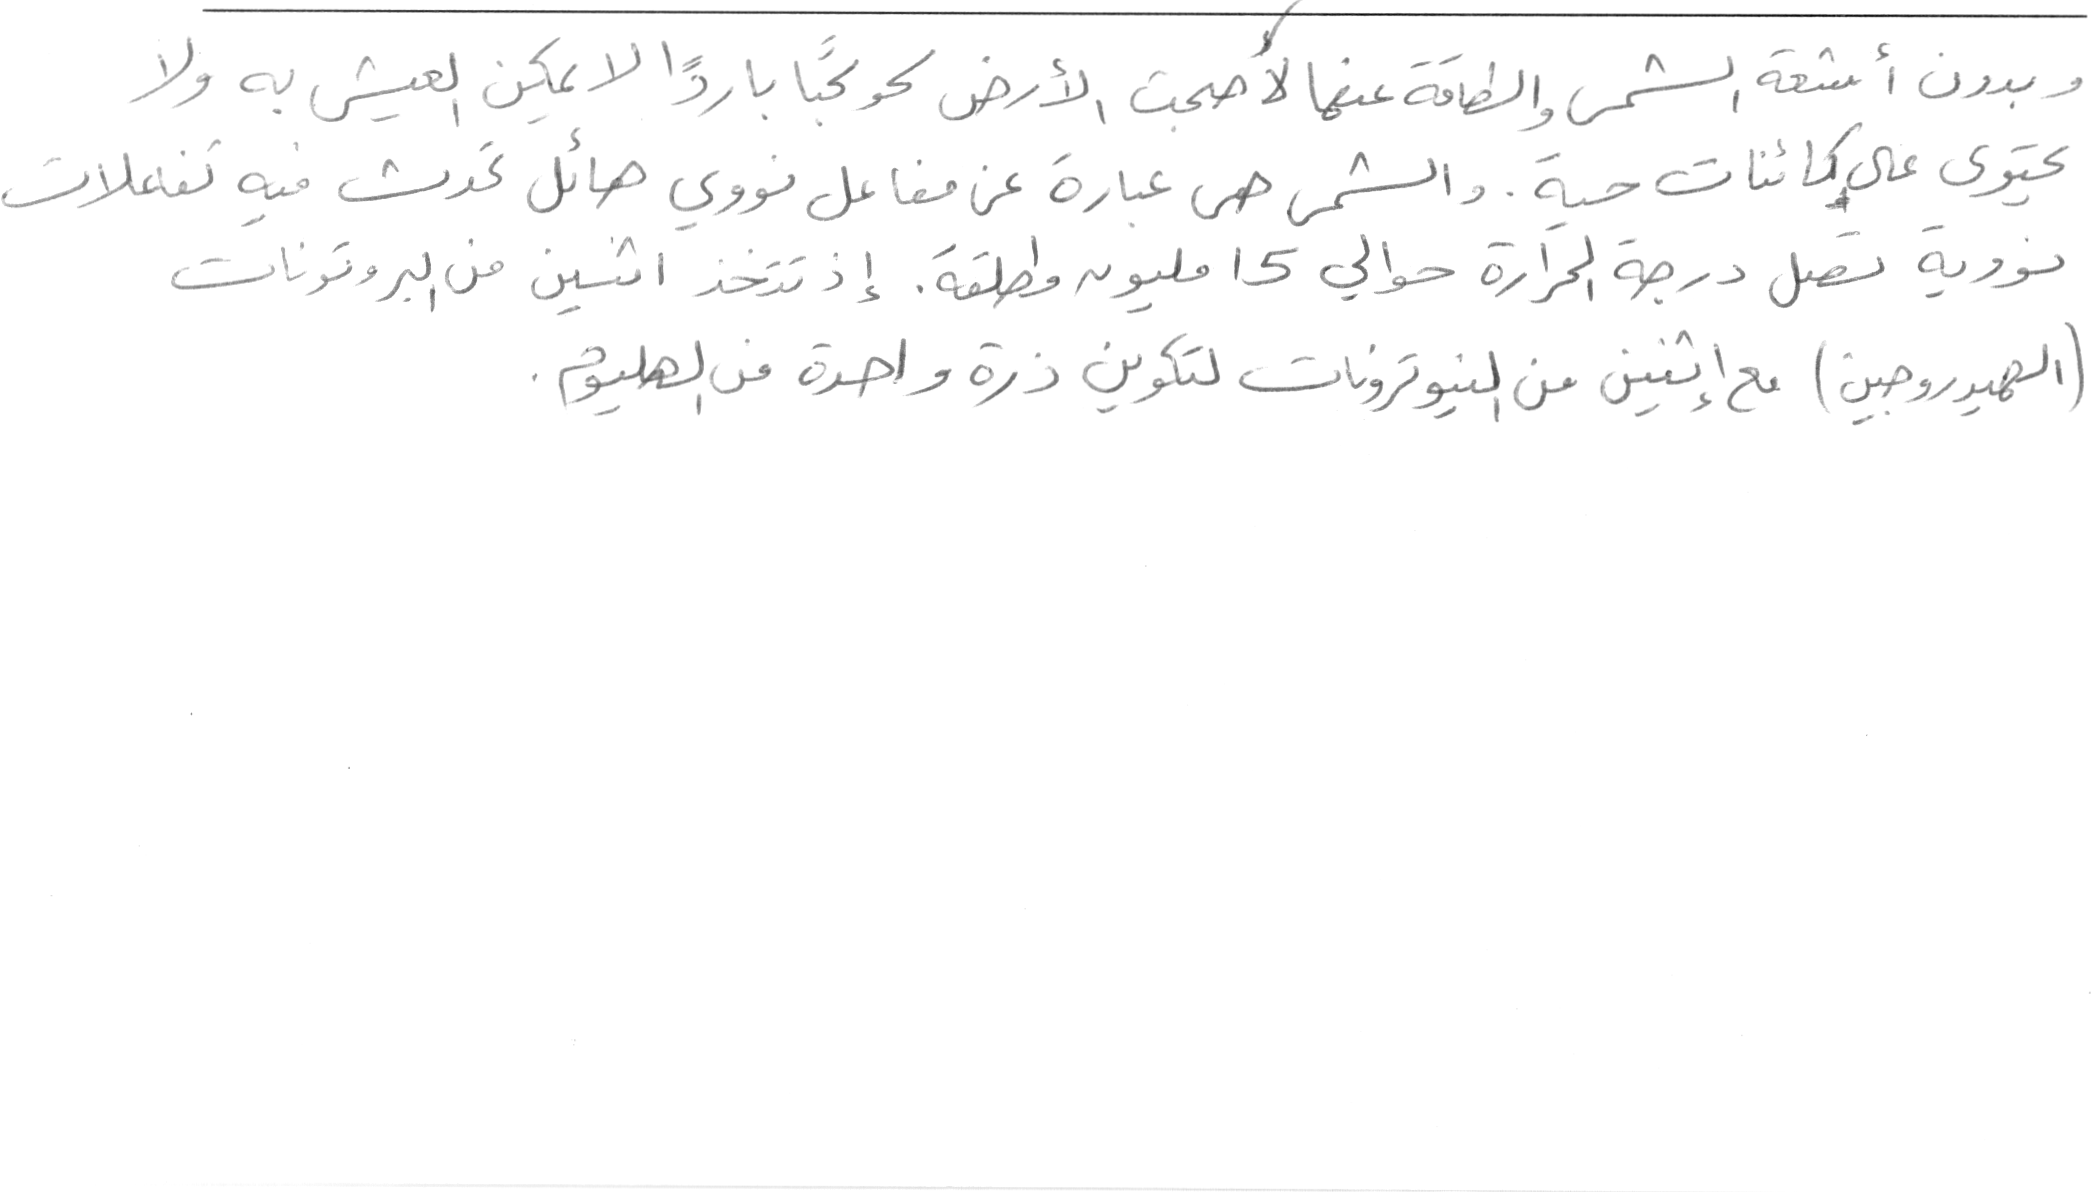 وبدون أشعة الشمس والطاقة عنها لأصبحت الأرض كوكبًا باردًا لا يمكن العيش به ولا
يحتوى على كائنات حية. والشمس هى عبارة عن مفاعل نووي هائل تحدث فيه تفاعلات
نووية تصل درجة الحرارة حوالي 15 مليون مطلقة. إذ تتخذ اثنين من البروتونات
(الهيدروجين) مع إثنين من النيوترونات لتكوين ذرة واحدة من الهليوم.